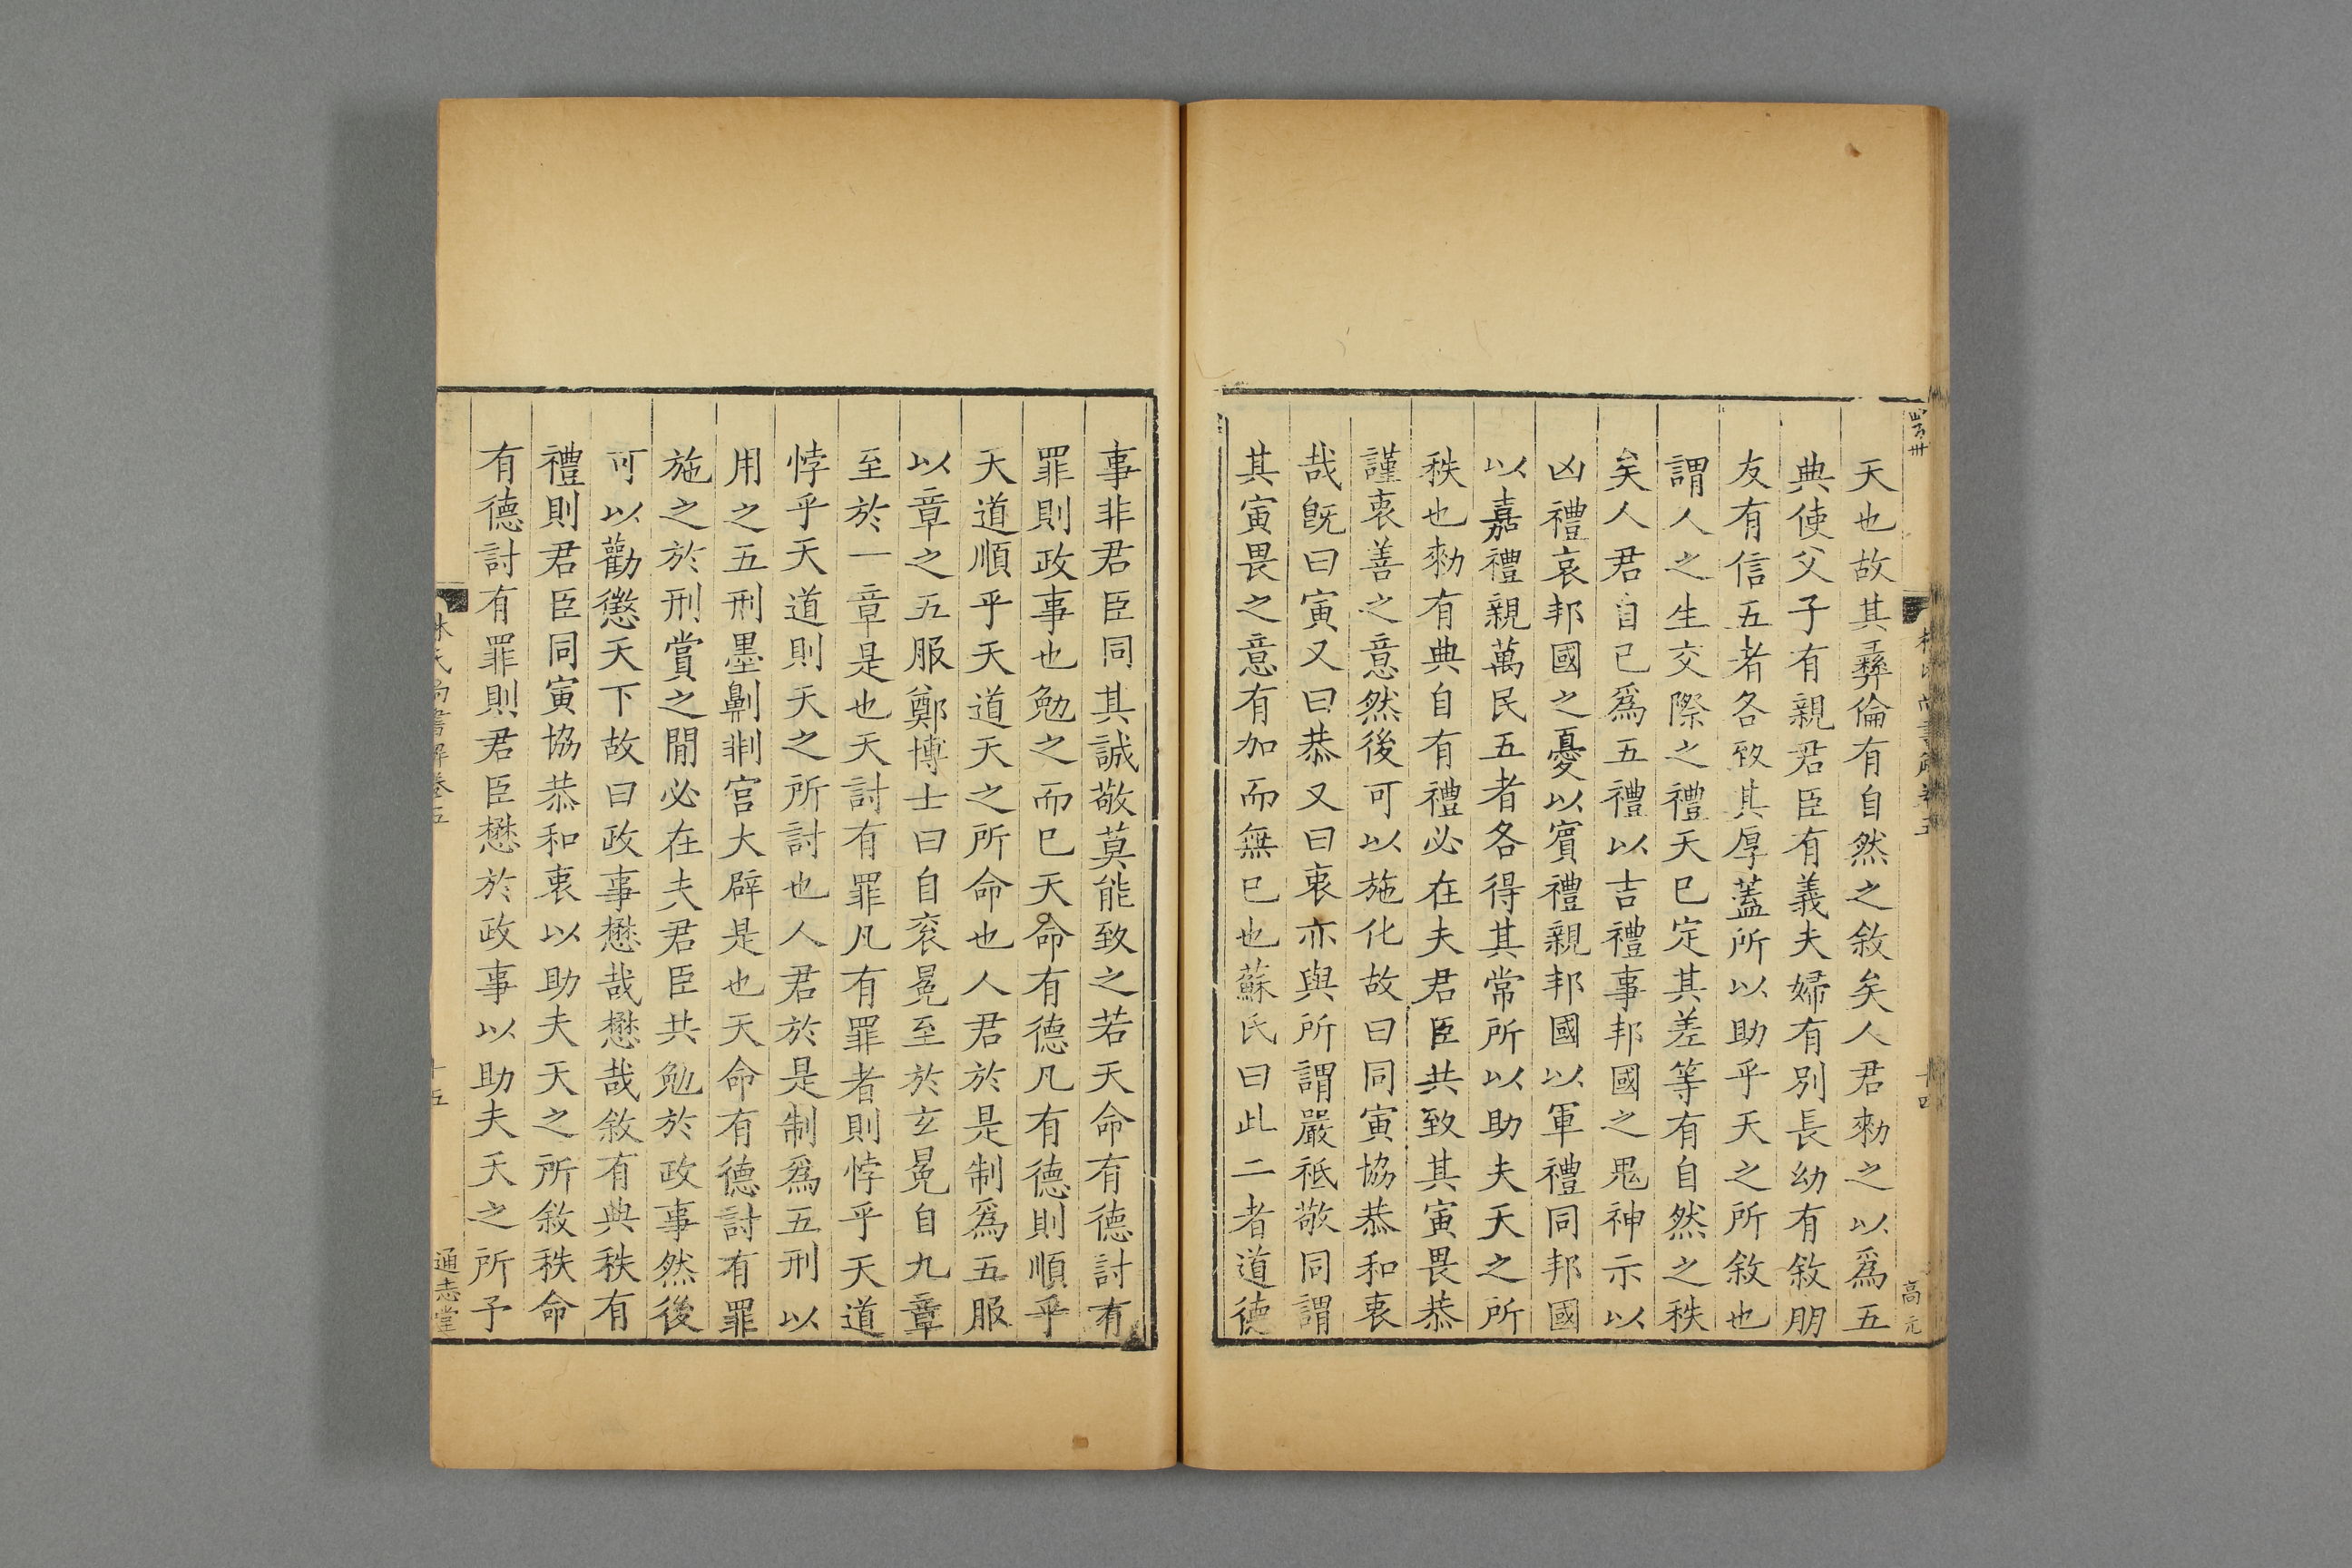 天也故其彞倫有自然之敘矣人君勑之以爲五
典使父子有親君臣有義夫婦有別長幼有敘朋
友有信五者各致其厚蓋所以助乎天之所敘也
謂人之生交際之禮天已定其差等有自然之秩
矣人君自已爲五禮以吉禮事邦國之鬼神示以
凶禮哀邦國之憂以賓禮親邦國以軍禮同邦國
以嘉禮親萬民五者各得其常所以助夫天之所
秩也勑有典自有禮必在夫君臣共致其寅畏恭
謹衷善之意然後可以施化故曰同寅協恭和衷
哉旣曰寅又曰恭又曰衷亦與所謂嚴祗敬同謂
其寅畏之意有加而無已也蘇氏曰此二者道德
高元
事非君臣同其誠敬莫能致之若天命有德討有
罪則政事也勉之而已天命有德凡有德則順乎
天道順乎天道天之所命也人君於是制爲五服
以章之五服鄭博士曰自衮冕至於玄冕自九章
至於一章是也天討有罪凡有罪者則悖乎天道
悖乎天道則天之所討也人君於是制爲五刑以
用之五刑墨劓剕宫大辟是也天命有德討有罪
施之於刑賞之閒必在夫君臣共勉於政事然後
可以勸懲天下故曰政事懋哉懋哉敘有典秩有
禮則君臣同寅協恭和衷以助夫天之所敘秩命
有德討有罪則君臣懋於政事以助夫天之所予
林氏尚書解卷五
十五
通志堂